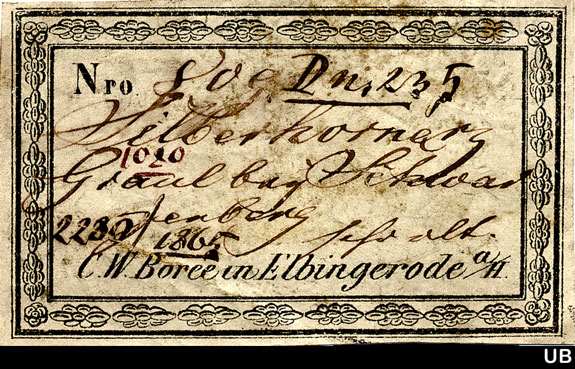 Nro 809. Dn, 235
Silberhornerz
1020
Graul bey Schwar
zenberg
2230
1865
sehr alt.
C. W. Boree in Elbingerode a/H.
UB